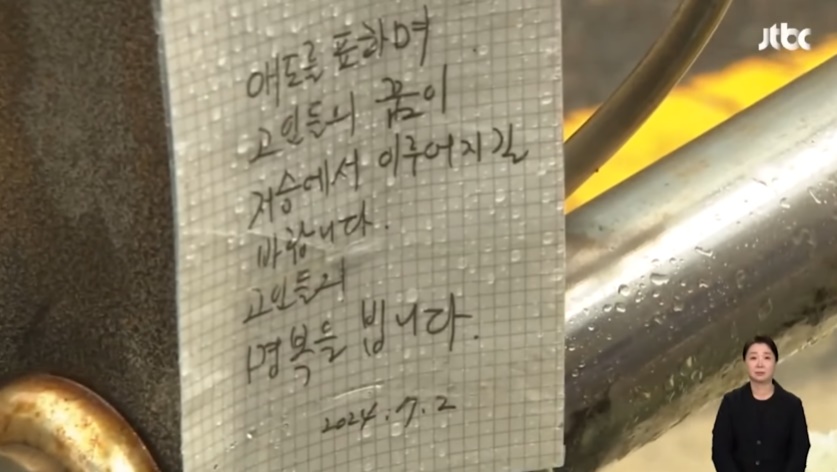 jtbc
애도를 표하며
고인들의 꿈이
저승에서 이루어지길
바랍니다.
고인들의
명복을 빕니다.
2024.7.2